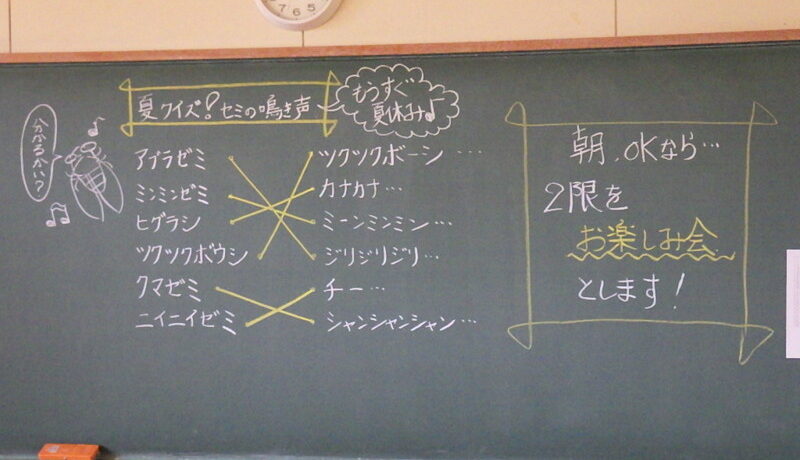 6 5
もうすぐ
夏休み♪
夏クイズ!セミの鳴き声
分かるかい?
アブラゼミ
ミンミンゼミ
ヒグラシ
ツクツクボウシ
クマゼミ
ニイニイゼミ
ツクツクボーシ…
カナカナ…
ミーンミンミン…
ジリジリジリ…
チー…
シャンシャンシャン…
朝、OKなら…
2限を
お楽しみ会
とします!